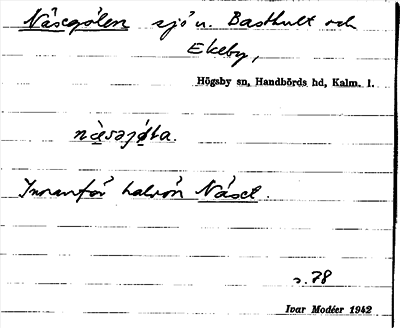 Näsegölen sjö u. Basthult och
Ekeby,
Högsby sn, Handbörds hd, Kalm. l.
Innanför halvön Näset.
s. 78
Ivar Modéer 1942